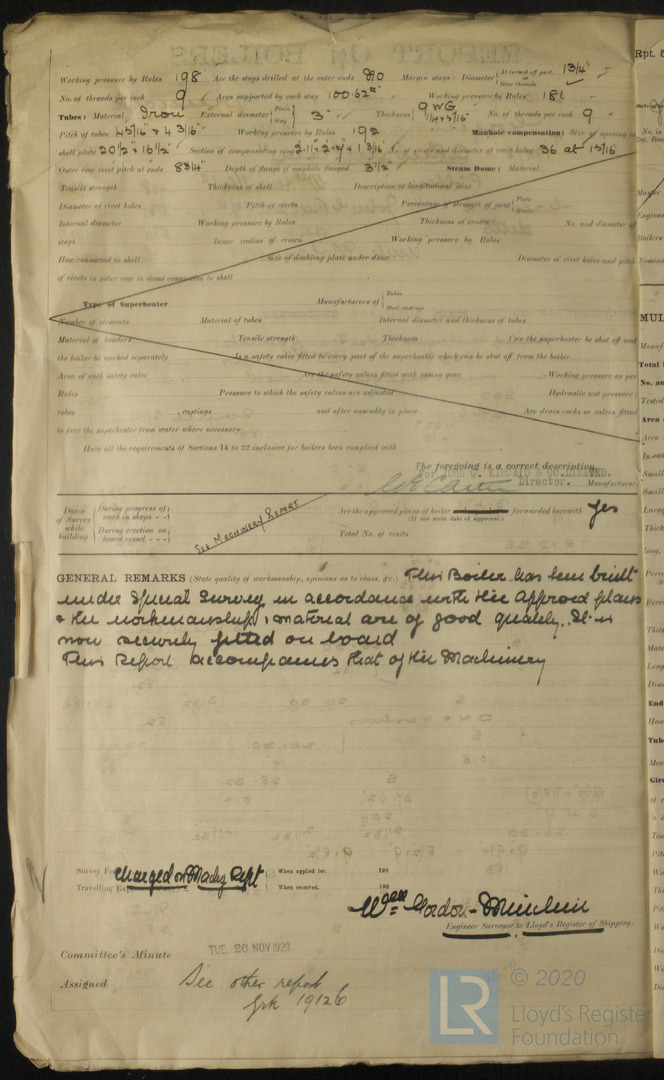 Working pressure by Rules 198 Are the stays drilled at the outer ends No Margin stays: Diameter { At turned off part, or Over threads 1 3/4"
No. of threads per inch 9 Area supported by each stay 100.62" Working pressure by Rules 181
Tubes: Material Iron External diameter { Plain Stay } 3" Thickness { 9 WG 1/4 & 5/16" No. of threads per inch 9
Pitch of tubes 4 5/16" x 4 3/16" Working pressure by Rules 192 Manhole compensation: Size of opening in
shell plate 20 1/2" x 16 1/2" Section of compensating ring No. of rivets and diameter of rivet holes 36 at 15/16"
Outer row rivet pitch at ends 8 3/4" Depth of flange if manhole flanged 3 1/2" Steam Dome: Material
Tensile strength Thickness of shell Description of longitudinal joint
Diameter of rivet holes Pitch of rivets Percentage of strength of joint { Plate Rivets
Internal diameter Working pressure by Rules Thickness of crown No. and diameter of
stays Inner radius of crown Working pressure by Rules
How connected to shell Size of doubling plate under dome Diameter of rivet holes and pitch
of rivets in outer row in dome connection to shell
Type of Superheater Manufacturers of { Tubes Steel castings
Number of elements Material of tubes Internal diameter and thickness of tubes
Material of headers Tensile strength Thickness Can the superheater be shut off and
the boiler be worked separately Is a safety valve fitted to every part of the superheater which can be shut off from the boiler
Area of each safety valve Are the safety valves fitted with easing gear Working pressure as per
Rules Pressure to which the safety valves are adjusted Hydraulic test pressure:
tubes , castings and after assembly in place Are drain cocks or valves fitted
to free the superheater from water where necessary
Have all the requirements of Sections 14 to 22 inclusive for boilers been complied with
The foregoing is a correct description,
For JOHN G. KINCAID & CO. LIMITED.
Director. Manufacturer.
Dates of Survey while building { During progress of work in shops - - } { During erection on board vessel - - - } SEE MACHINERY REPORT Are the approved plans of boiler forwarded herewith Yes
(If not state date of approval.)
Total No. of visits
GENERAL REMARKS (State quality of workmanship, opinions as to class, &c. This Boiler has been built
under Special Survey in accordance with the Approved plans
& the workmanship & material are of good quality. It is
now securely fitted on board
This Report accompanies that of the Machinery
Survey Fee Charged on Machy Rept When applied for, 192
Travelling When received, 192
Wm Gordon-Minchin
Engineer Surveyor to Lloyd's Register of Shipping.
Committee's Minute TUE. 26 NOV 1929
Assigned See other report
Grk 19126
© 2020
LR Lloyd's Register
Foundation
Rpt. 5
MUL